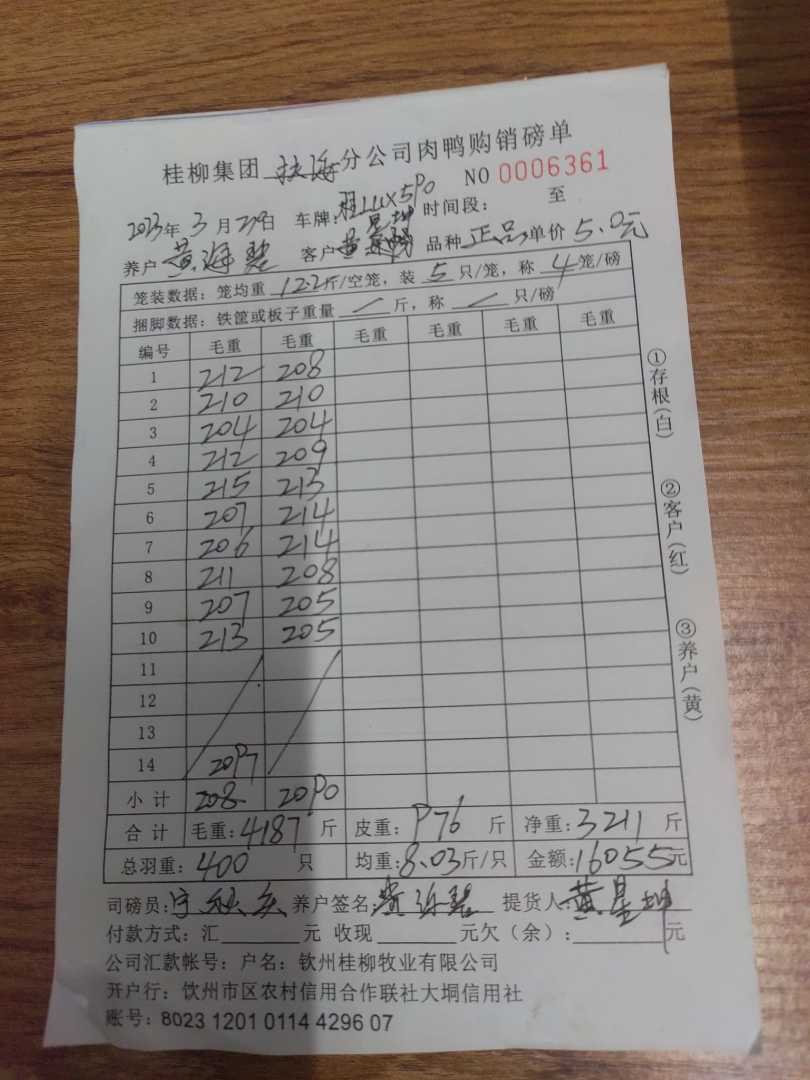 桂柳集团 扶海 分公司肉鸭购销磅单
NO 0006361
2023年 3月29日 车牌: 时间段: 至
养户 黄海碧 客户 黄星坤 品种 正品 单价 5.0元
笼装数据: 笼均重 12.2斤/空笼, 装 5 只/笼, 称 4 笼/磅
捆脚数据: 铁筐或板子重量 / 斤, 称 / 只/磅
编号 毛重 毛重 毛重 毛重 毛重 毛重
1 212 208
2 210 210
3 204 204
4 212 209
5 215 213
6 207 214
7 206 214
8 211 208
9 207 205
10 213 205
11
12
13
14 2097
小计 2090
合计 毛重: 4187 斤 皮重: 976 斤 净重: 3211 斤
总羽重: 400 只 均重: 8.03斤/只 金额: 16055元
司磅员: 养户签名: 黄海碧 提货人: 黄星坤
付款方式: 汇 元 收现 元欠(余): 元
公司汇款帐号: 户名: 钦州桂柳牧业有限公司
开户行: 钦州市区农村信用合作联社大垌信用社
账号: 8023 1201 0114 4296 07
①存根(白)
②客户(红)
③养户(黄)